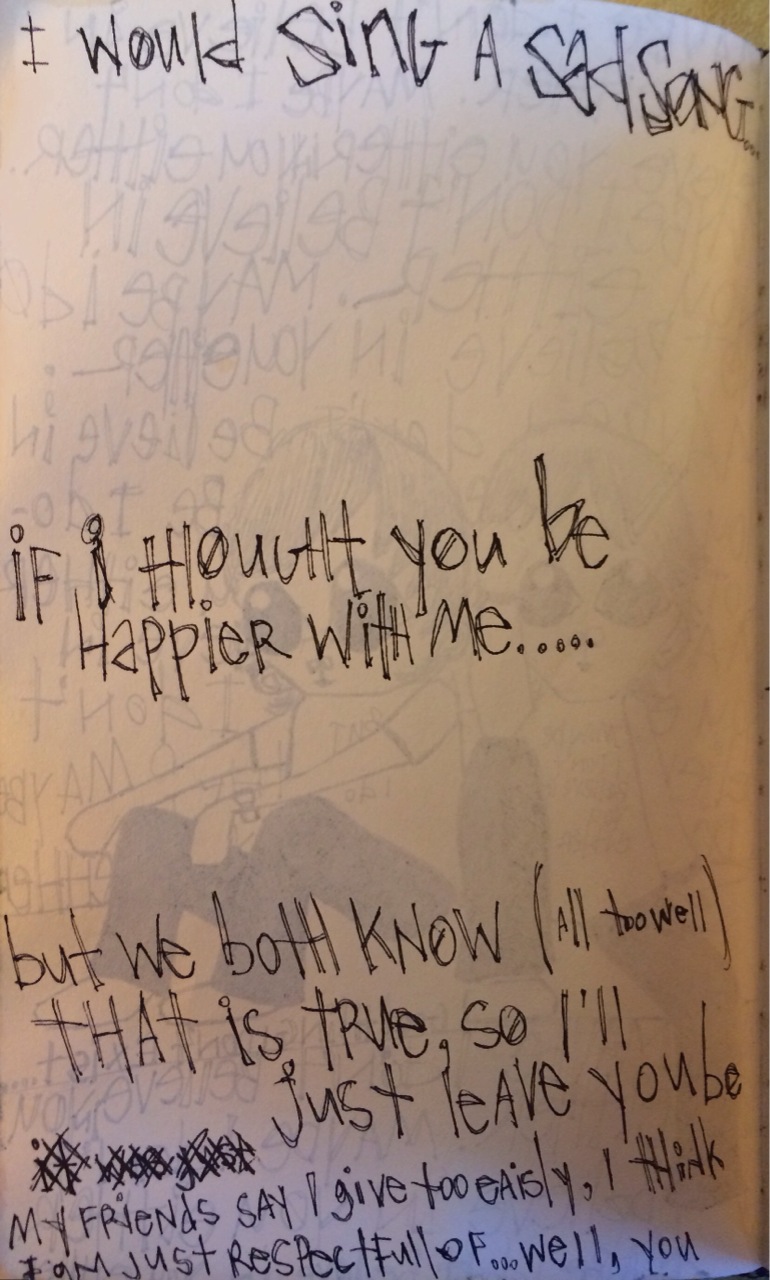 I would sing A sad song...
if i thought you be
Happier with me.....
but we both know (All too well)
THAt is true, so I'll
just leAve you be
My friends say I give too eaisly, I think
I am just respectfull of...well, you